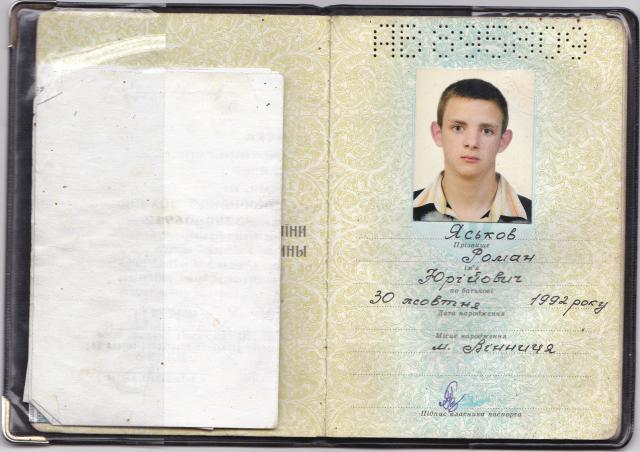 їни
ИНЫ
Яськов
Прізвище
Роман
Ім'я
Юрійович
по батькові
30 жовтня 1992 року
Дата народження
Місце народження
м. Вінниця
Підпис власника паспорта